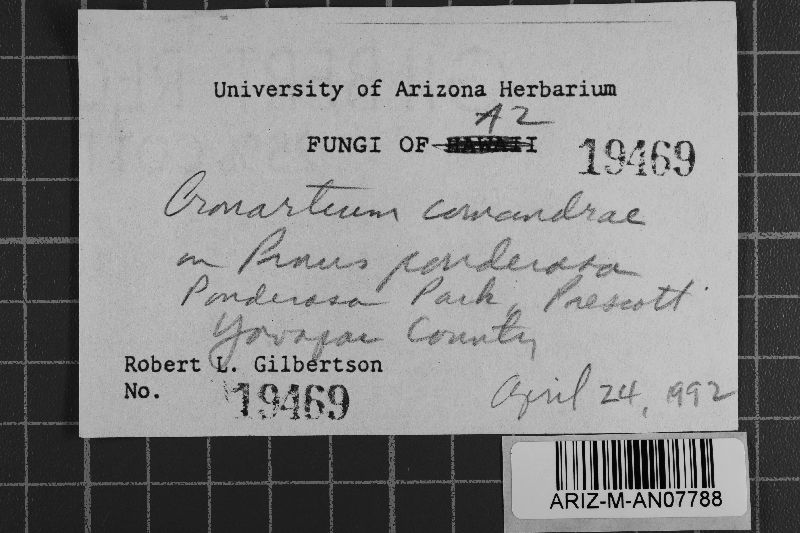 University of Arizona Herbarium
AZ
FUNGI OF HAWAII 19469
Cronartium comandrae
on Pinus ponderosa
Ponderosa Park, Prescott
Yavapai County
Robert L. Gilbertson
No. 19469
April 24, 1992
ARIZ-M-AN07788